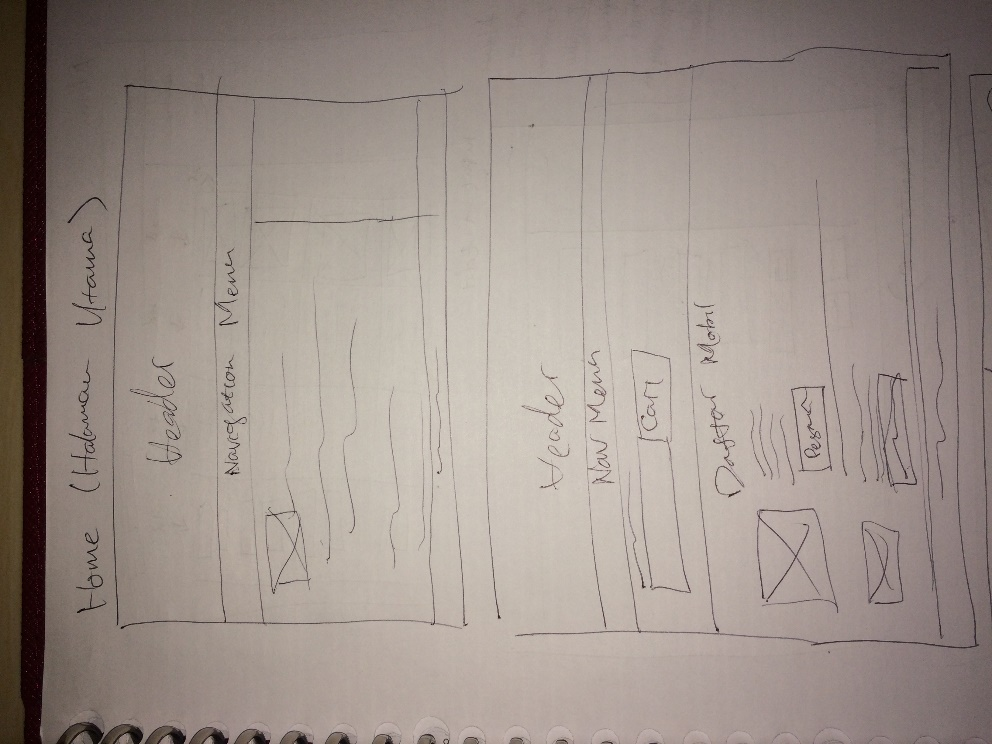 Home (Halaman Utama)
Header
Navigation Menu
Header
Nav Menu
Cari
Daftar Mobil
Pesan